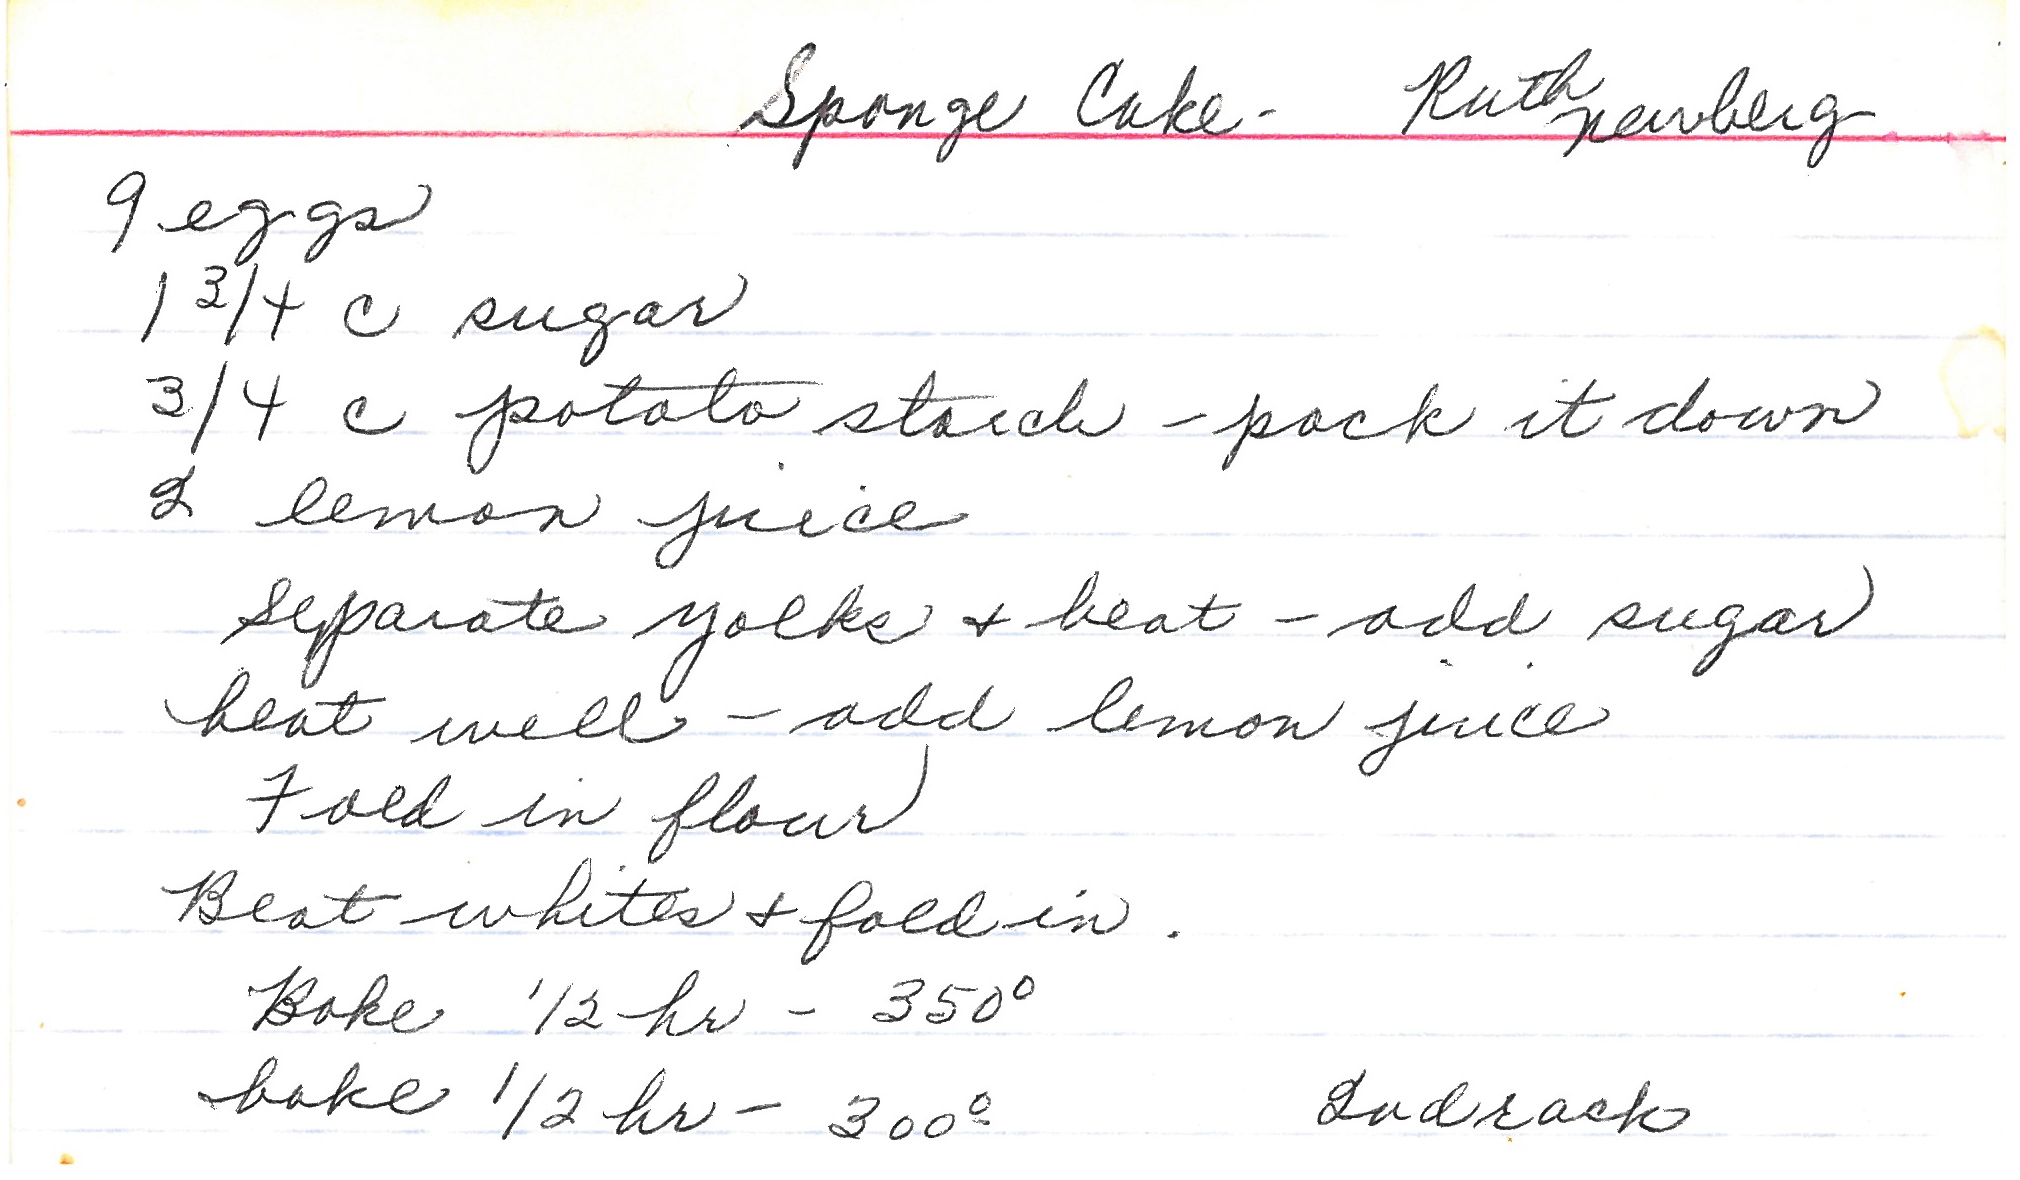 Sponge Cake - Ruth Newberg
9 eggs
1 3/4 c sugar
3/4 c potato starch - pack it down
2 lemon juice
Separate yolks + beat - add sugar
beat well - add lemon juice
Fold in flour
Beat whites + fold in.
Bake 1/2 hr - 350°
bake 1/2 hr - 300° 2nd rack